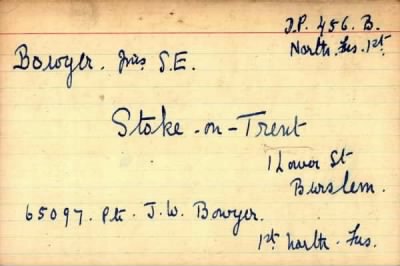 D.P. 456. B.
North. Fus. 1st.
Bowyer. Mrs S.E.
Stoke-on-Trent
1 Lower St
Burslem.
65097. Pte. J.W. Bowyer.
1st North. Fus.